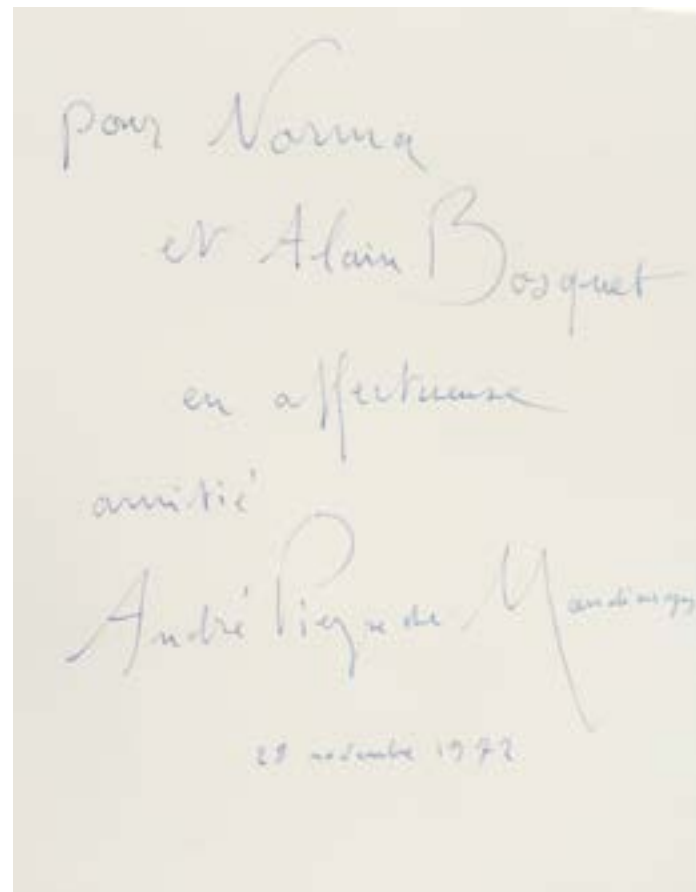 pour Norma
et Alain Bosquet
en affectueuse
amitié
André Pieyre de Mandiargues
28 novembre 1972